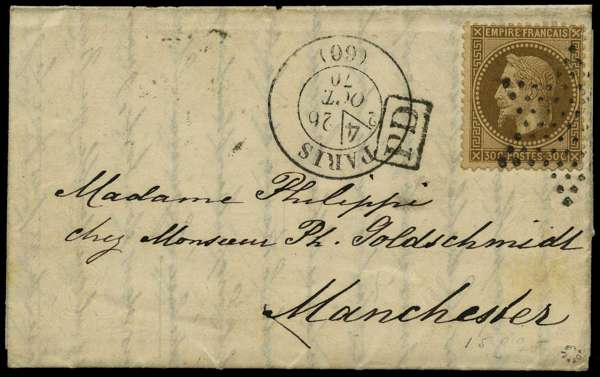 EMPIRE FRANÇAIS
30c POSTES 30c
PARIS
4 26
2
OCT.
70
(60)
PD
Madame Philippi
chez Monsieur Ph. Goldschmidt
Manchester